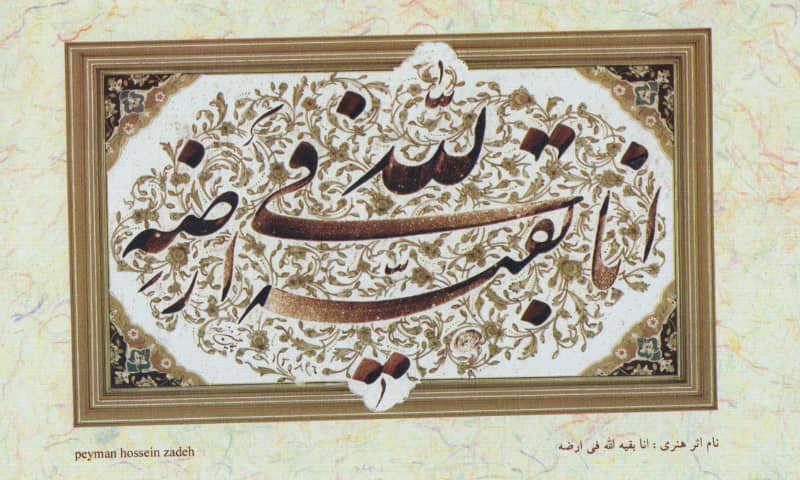 انا بقیة الله فی ارضه
نام اثر هنری : انا بقیه الله فی ارضه
peyman hossein zadeh